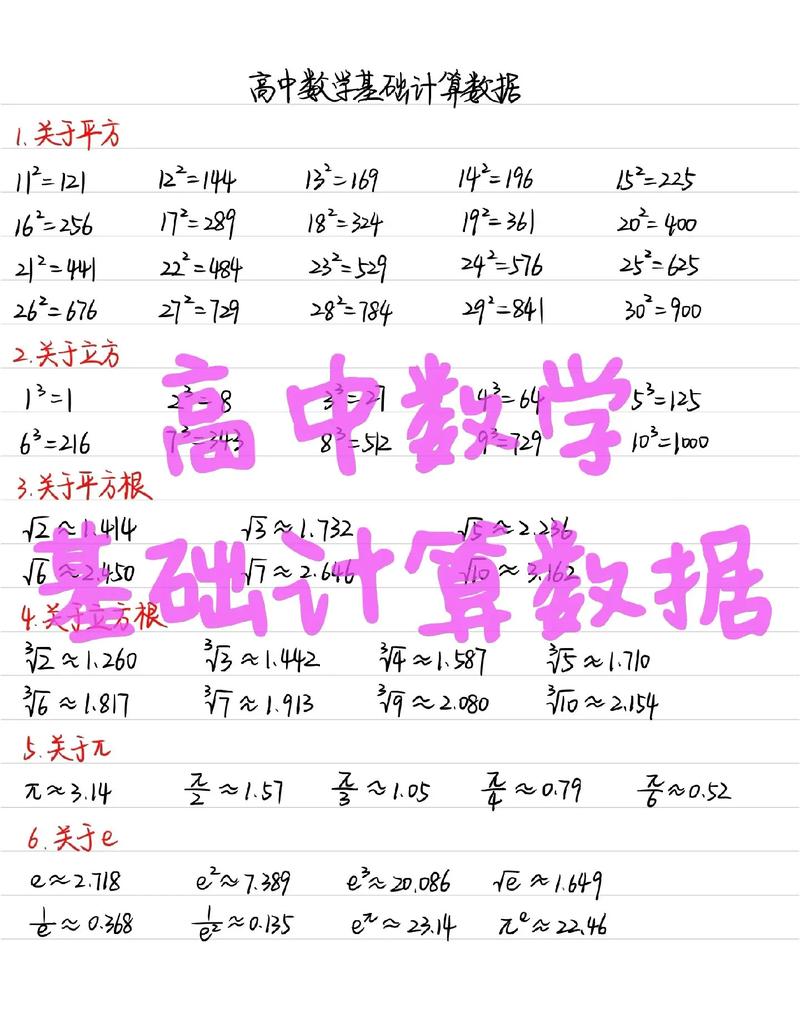 高中数学基础计算数据
1.关于平方
11²=121 12²=144 13²=169 14²=196 15²=225
16²=256 17²=289 18²=324 19²=361 20²=400
21²=441 22²=484 23²=529 24²=576 25²=625
26²=676 27²=729 28²=784 29²=841 30²=900
2.关于立方
1³=1 2³=8 3³=27 4³=64 5³=125
6³=216 7³=343 8³=512 9³=729 10³=1000
高中数学
3.关于平方根
√2≈1.414 √3≈1.732 √5≈2.236
√6≈2.450 √7≈2.646 √10≈3.162
基础计算数据
4.关于立方根
∛2≈1.260 ∛3≈1.442 ∛4≈1.587 ∛5≈1.710
∛6≈1.817 ∛7≈1.913 ∛9≈2.080 ∛10≈2.154
5.关于π
π≈3.14 π/2≈1.57 π/3≈1.05 π/4≈0.79 π/6≈0.52
6.关于e
e≈2.718 e²≈7.389 e³≈20.086 √e≈1.649
1/e≈0.368 1/e²≈0.135 e^π≈23.14 π^e≈22.46